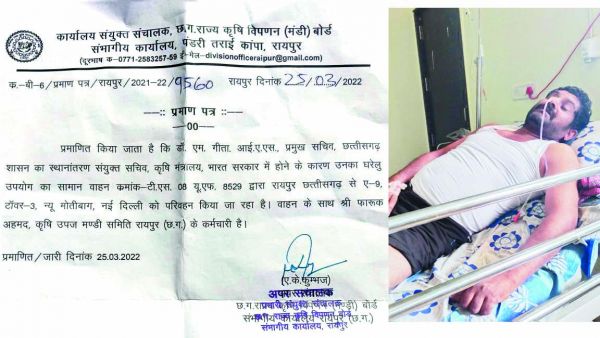 कार्यालय संयुक्त संचालक, छ.ग.राज्य कृषि विपणन (मंडी) बोर्ड
संभागीय कार्यालय, पंडरी तराई कांपा, रायपुर
(दूरभाष क-0771-2583257-59 ई-मेल-divisionofficeraipur@gmail.com)
क.-बी-6/प्रमाण पत्र/रायपुर/2021-22/9560 रायपुर दिनांक 25/03/2022
--:: प्रमाण पत्र ::--
--00--
प्रमाणित किया जाता है कि डॉ. एम. गीता. आई.ए.एस., प्रमुख सचिव, छत्तीसगढ़
शासन का स्थानांतरण संयुक्त सचिव, कृषि मंत्रालय, भारत सरकार में होने के कारण उनका घरेलु
उपयोग का सामान वाहन कमांक-टी.एस. 08 यू.एफ. 8529 द्वारा रायपुर छत्तीसगढ़ से ए-9,
टॉवर-3, न्यू मोतीबाग, नई दिल्ली को परिवहन किया जा रहा है। वाहन के साथ श्री फारूक
अहमद, कृषि उपज मण्डी समिति रायपुर (छ.ग.) के कर्मचारी है।
प्रमाणित/जारी दिनांक 25.03.2022
(ए.के.कुम्भज)
अपर संचालक
छ.ग.राज्य कृषि विपणन (मण्डी) बोर्ड
संभागीय कार्यालय रायपुर (छ.ग.)
संभागीय कार्यालय, रायपुर